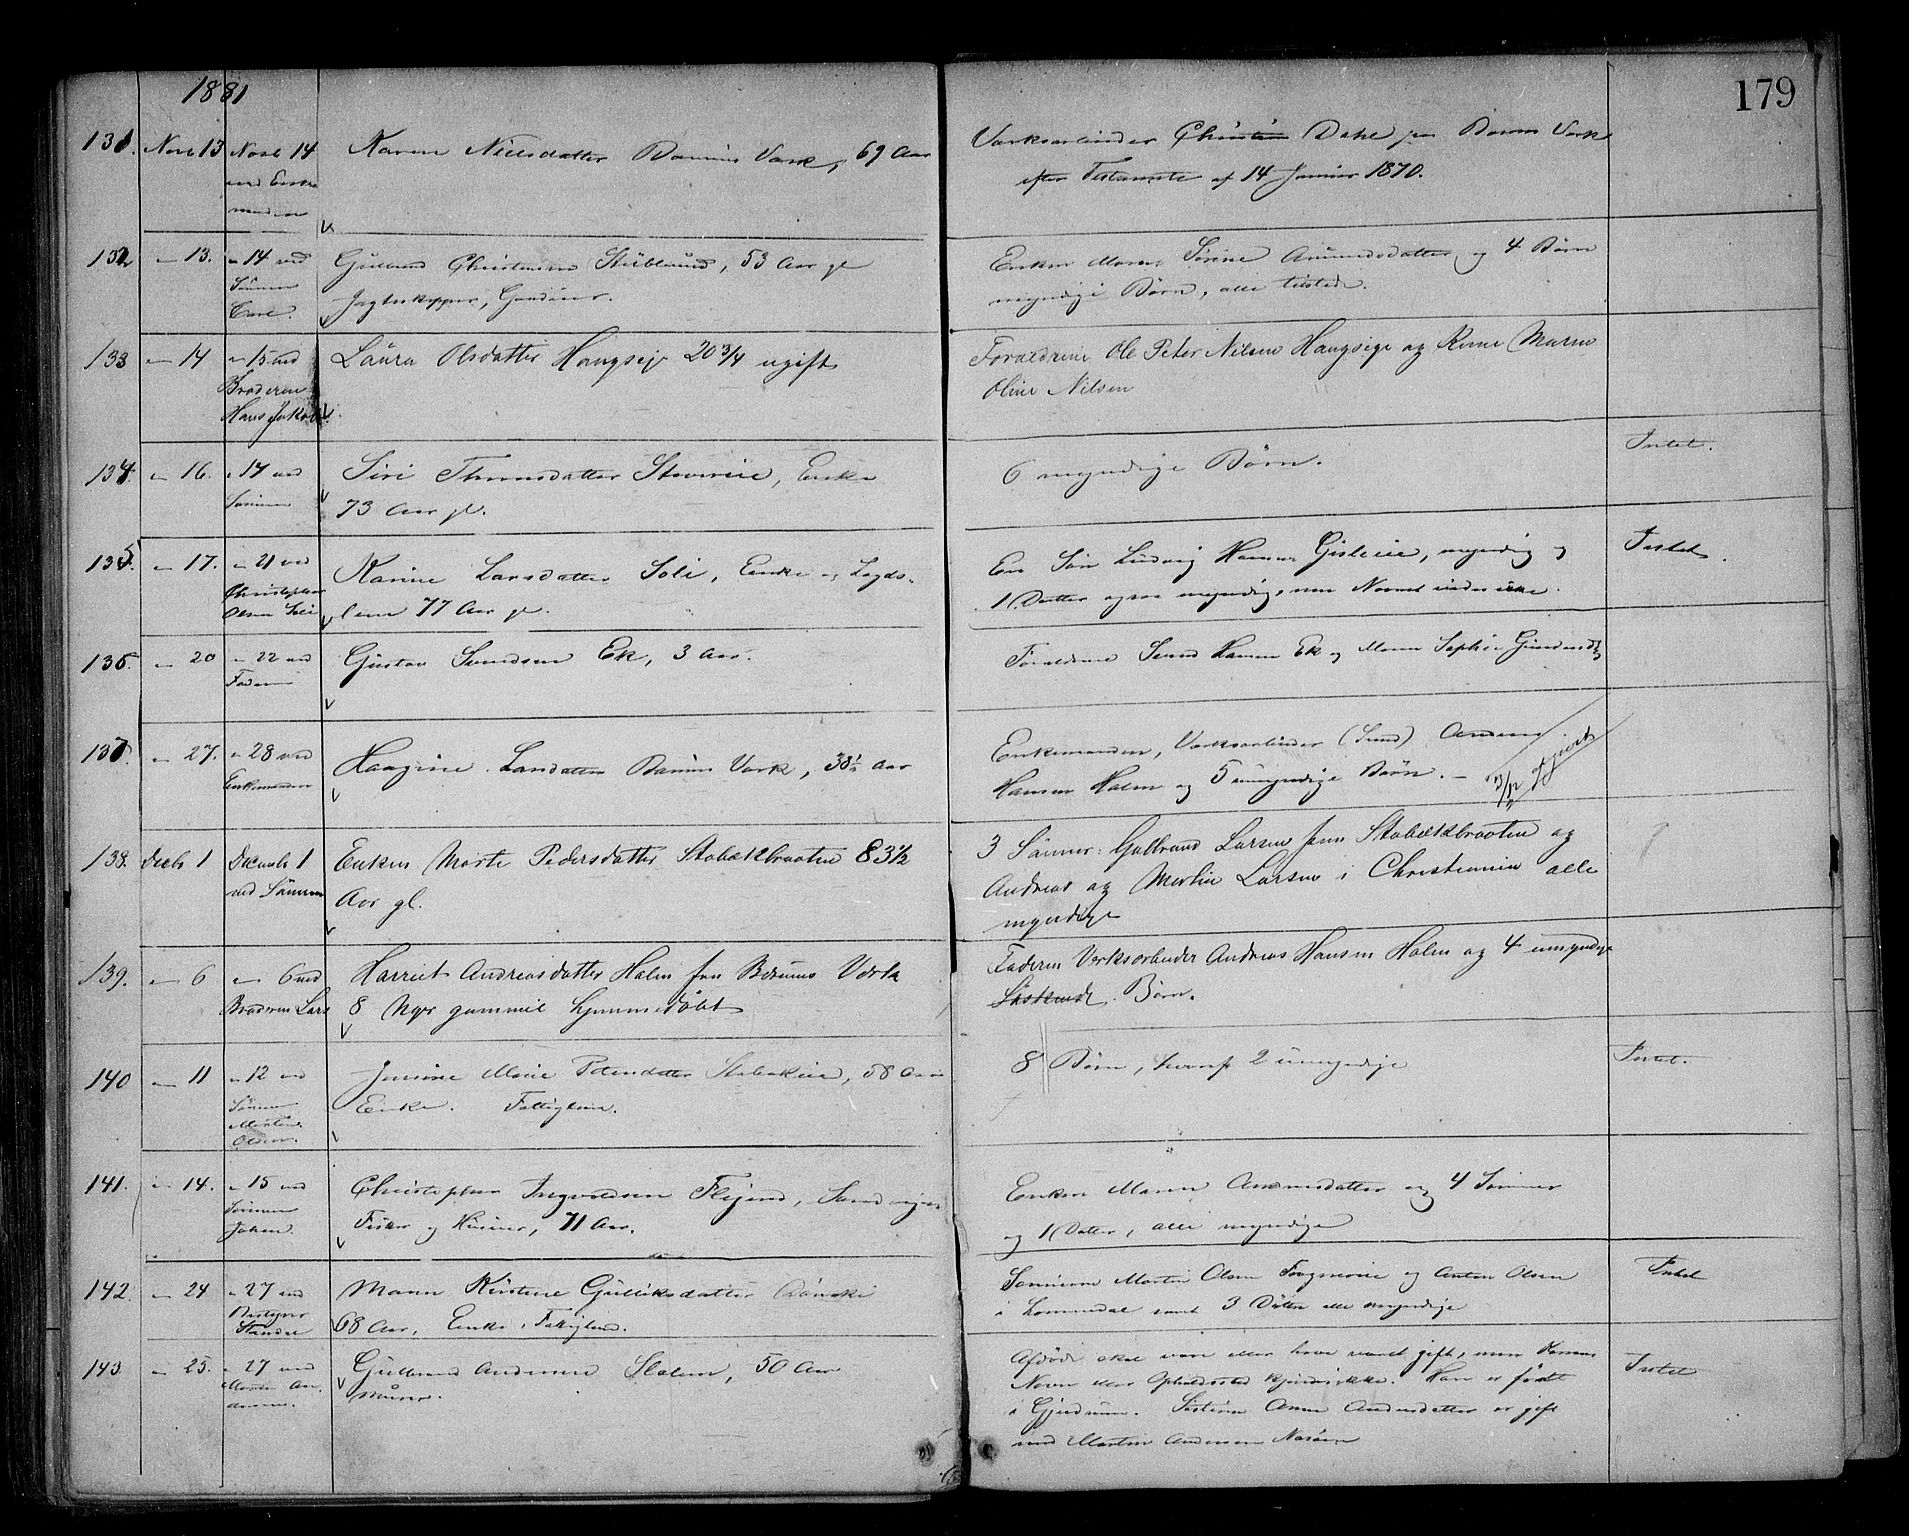 1881
179
131. Novb 13 Novb 14 Karen Nielsdatter Bærums Værk, 69 Aar
Værksarbeider Christian Dahl paa Bærums Værk
efter Testamente af 14 Januar 1870.
132 " 13. " 14 ved Gulbrand Christensen Stüblund, 53 Aar gl
Sönnen
Carl. Jagtskipper, Gaardeier.
Enken Maren Sørine Amundsdatter og 4 Børn
myndige Børn, alle tilstede.
133 " 14 " 15 ved Laura Olsdatter Haugseje 20 3/4 ugift
Broderen
Hans Jakob
Forældrene Ole Peter Nilsen Haugseje og Kone Maren
Oline Nilsen
134. " 16. " 17 ved Siri Thronsdatter Stovereie, Enke
Sønnen 73 Aar gl.
6 myndige Børn.
Intet.
135. " 17. " 21 ved Karine Larsdatter Soli, Enke og Lægds-
Christopher
Olsen Soli lem 77 Aar gl.
En Søn Ludvig Hansen Gisleeie, myndig og
1 Datter ogsaa myndig, men Navnet vides ikke.
Intet
136. " 20 " 22 ved Gustav Svendsen Ek, 3 Aar.
Faderen
Forældrene Svend Hansen Ek og Maren Sophie
137. " 27. " 28 ved Haagine Larsdatter Bærums Værk, 38½ Aar
Enkemanden
Enkemanden, Værksarbeider (Smed) Andreas
Hansen Holm og 5 umyndige Børn. –
138. Decbr 1 Decembr 1 Enken Marte Pedersdatter Stabækbraaten 83½
ved Sönnen Aar gl.
3 Sönner: Gulbrand Larsen fra Stabækbraaten og
Andreas og Martin Larsen i Christiania alle
myndige
139. " 6 " 6 ved Harriet Andreasdatter Holm fra Bærums Værk
Broderen Lars 8 Uger gammel hjemmedöbt
Faderen Værksarbeider Andreas Hansen Holm og 4 umyndige
Söskende. Børn.
140 " 11 " 12 ved Marie Petersdatter Stabækeie, 58 Aar
Sønnen
Martin
Olsen. Enke. Fattiglem.
8 Børn, hvoraf 2 umyndige
Intet.
141. " 14. " 15 ved Christopher Ingvoldsen
Sønnen
Johan. Fisker og Huseier, 71 Aar.
Enken Maren og 4 Sønner
og 1 Datter, alle myndige
142. " 24 " 27 ved Maren Kirstine Gulliksdatter
Bestyrer
68 Aar, Enke, Fattiglem.
Sønnerne Martin Olsen og Anton Olsen
i Lommedal samt 3 Døtre alle myndige
Intet
143 " 25. " 27 ved Gulbrand Andersen Slaben, 50 Aar
Martin An-
dersen. Murer.
Afdøde skal være eller have været gift, men Konens
Navn eller Opholdssted kjendes ikke. Han er født
i Gjerdrum. Søsteren Anne Andersdatter er gift
med Martin Andersen
Intet